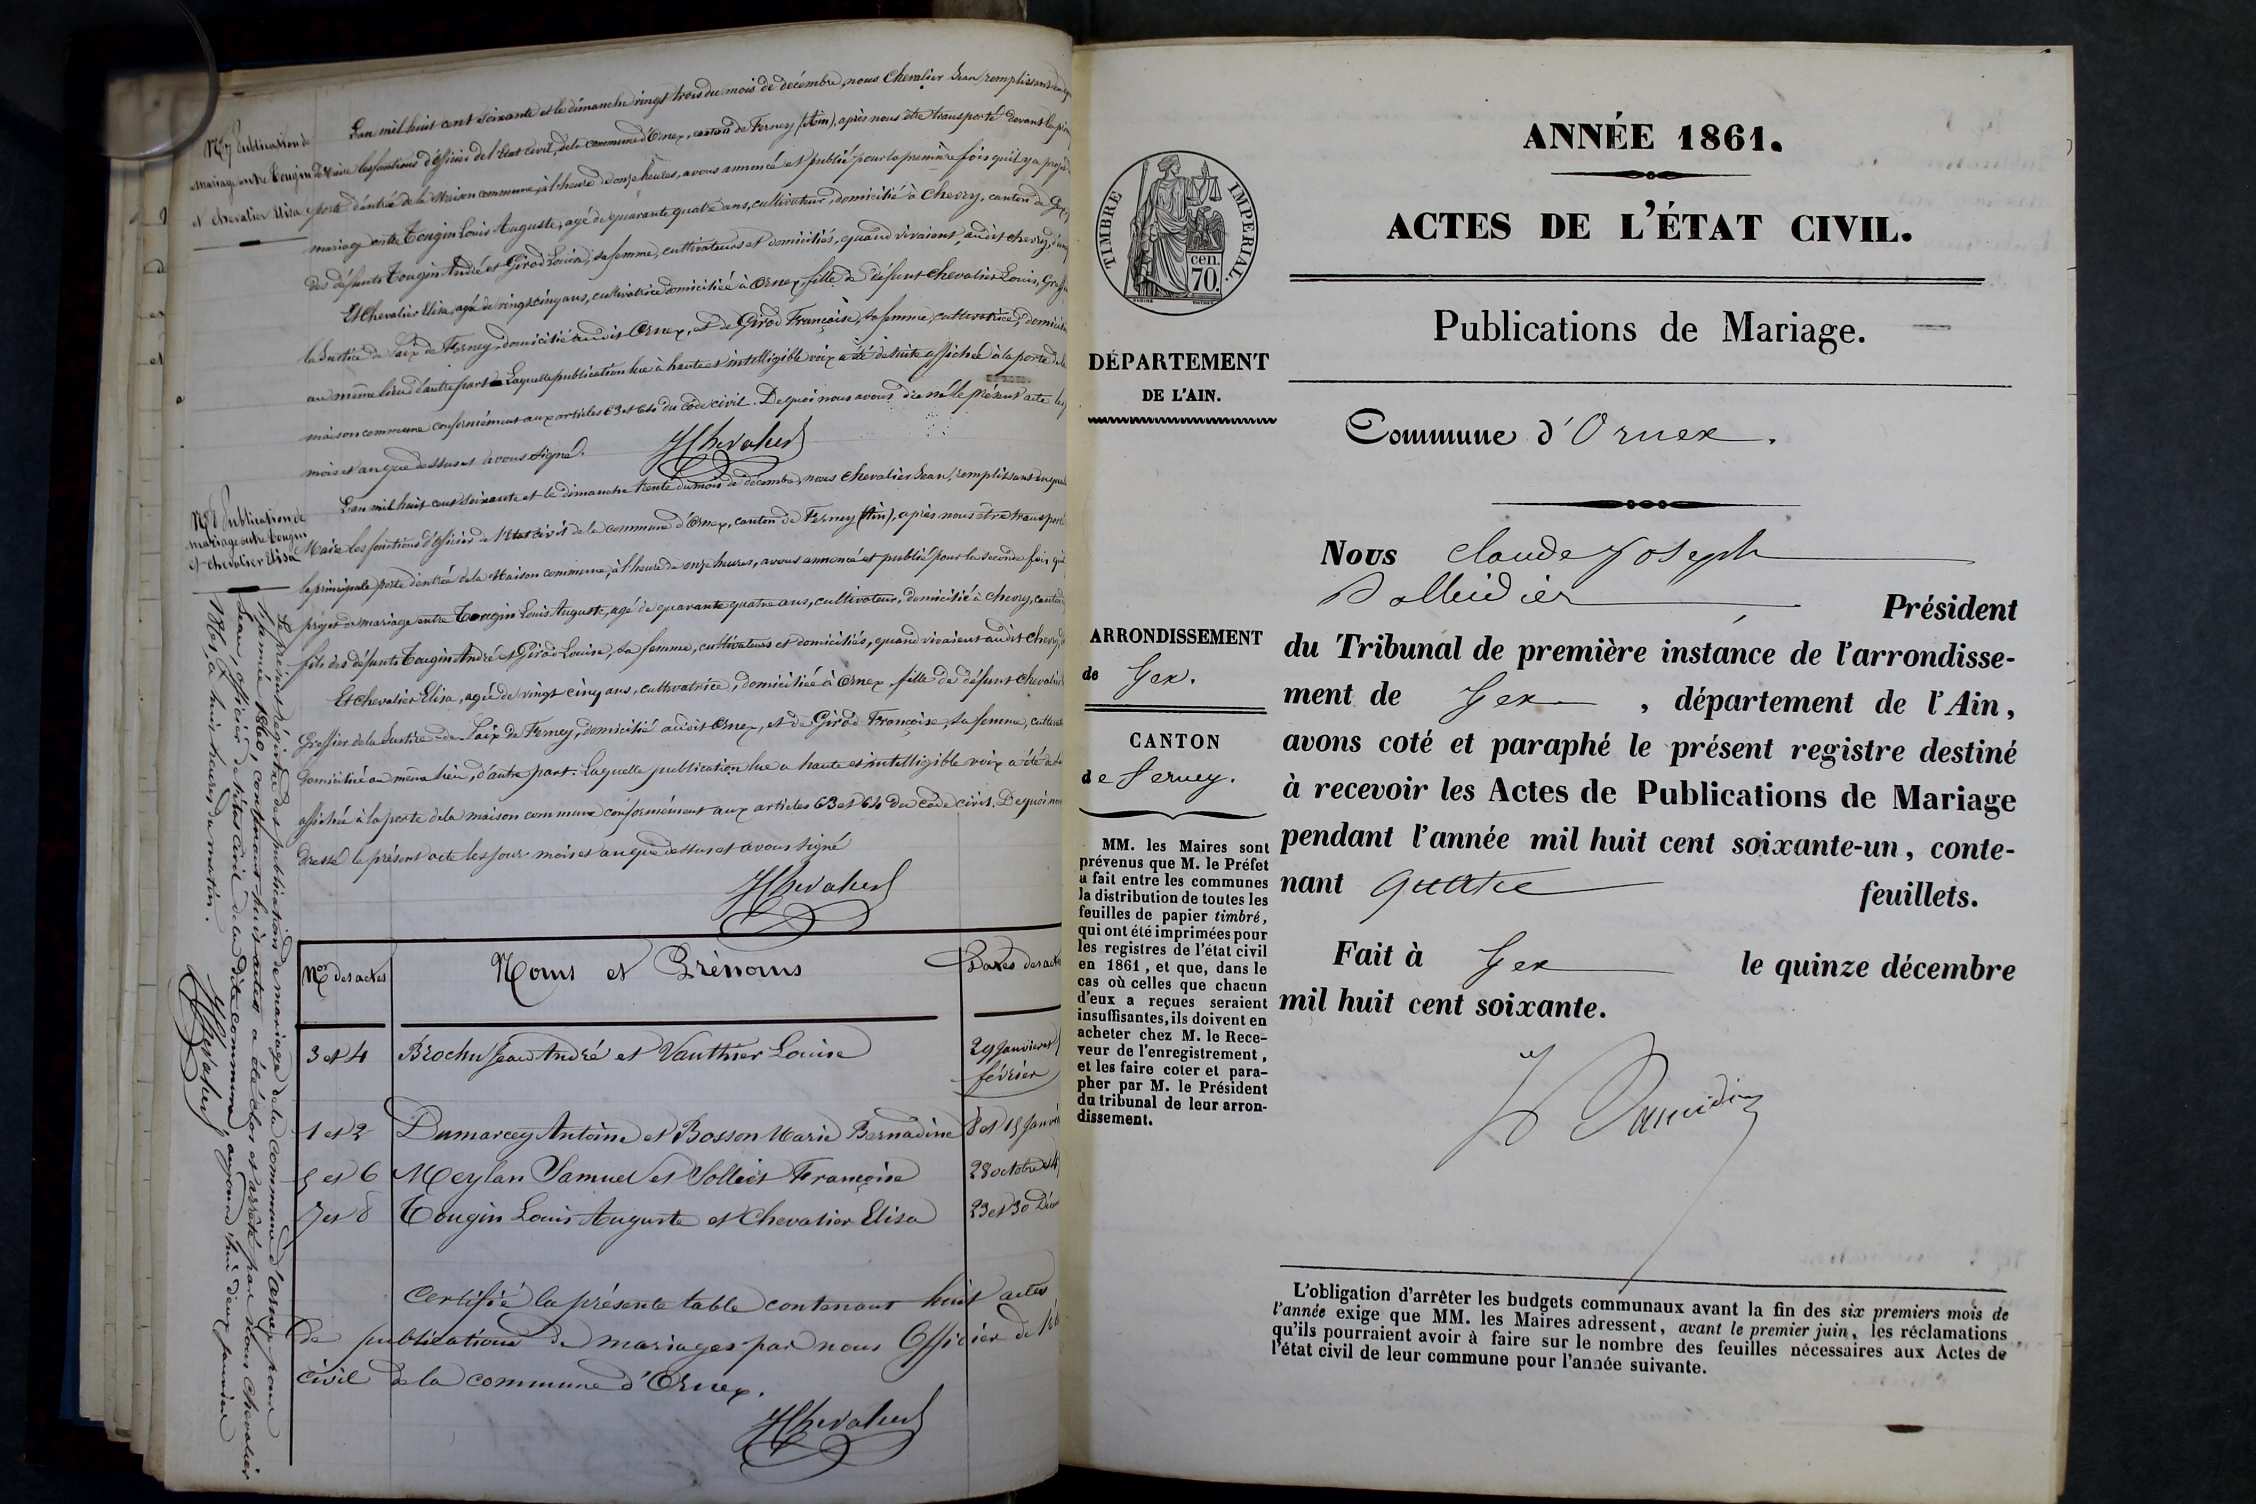 Nº 7 Publication de
mariage entre Tougin
et Chevalier Elisa
L'an mil huit cent soixante et le dimanche vingt trois du mois de décembre, nous Chevalier Jean, remplissant en
Maire les fonctions d'officier de l'Etat civil, de la commune d'Ornex, canton de Ferney (Ain), après nous être transporté devant la
porte d'entrée de la Maison commune, à l'heure de onze heures, avons annoncé et publié pour la première fois qu'il y a
mariage entre Tougin Louis Auguste, agé de quarante quatre ans, cultivateur, domicilié à Chevry, canton de Gex
des défunts Tougin André et Girod Louise, sa femme, cultivateurs et domiciliés, quand vivaient, audit Chevry,
Et Chevalier Elisa, agée de vingt cinq ans, cultivatrice domiciliée à Ornex, fille de défunt Chevalier Louis,
la Justice de Paix de Ferney, domicilié audit Ornex, et de Girod Françoise, sa femme, cultivatrice,
au même lieu d'autre part. Laquelle publication lue à haute et intelligible voix a été de suite affichée à la porte de la
maison commune conformément aux articles 63 et 64 du Code civil. De quoi nous avons dressé le présent acte les
mois et an que dessus et avons signé.
JChevalier
Nº 8 Publication de
mariage entre Tougin
et Chevalier Elisa
L'an mil huit cent soixante et le dimanche trente du mois de décembre, nous Chevalier Jean, remplissant en
Maire les fonctions d'officier de l'Etat civil de la commune d'Ornex, canton de Ferney (Ain), après nous être transporté
la principale porte d'entrée de la Maison commune, à l'heure de onze heures, avons annoncé et publié pour la seconde fois
projet de mariage entre Tougin Louis Auguste, agé de quarante quatre ans, cultivateur, domicilié à Chevry, canton
fils des défunts Tougin André et Girod Louise, sa femme, cultivateurs et domiciliés, quand vivaient audit Chevry,
Et Chevalier Elisa, agée de vingt cinq ans, cultivatrice, domiciliée à Ornex fille de défunt Chevalier
Greffier de la Justice de Paix de Ferney, domicilié audit Ornex, et de Girod Françoise, sa femme,
domiciliée au même lieu, d'autre part. Laquelle publication lue a haute et intelligible voix a été
affichée à la porte de la maison commune conformément aux articles 63 et 64 du Code civil. De quoi
dressé le présent acte les jour mois et an que dessus et avons signé
JChevalier
Le présent régistre des publications de mariage de la commune d'Ornex pour
l'année 1860, contenant huit actes a été clos et arrêté par nous Chevalier
Jean, officier de l'état civil de la dite commune, aujourd'hui deux janvier
à huit heures du matin.
JChevalier
Nos des actes Noms et Prénoms Dates des actes
3 et 4 Brochu Jean André et Vauthier Louise 29 Janvier et
février
1 et 2 Dumarcey Antoine et Bosson Marie Bernadine 8 et 15 Janvi
5 et 6 Meylan Samuel et Solliet Françoise 28 octobre et 4
7 et 8 Tougin Louis Auguste et Chevalier Elisa 23 et 30 Déc
Certifié la présente table contenant huit actes
de publications de mariages par nous Officier de l'ét
civil de la commune d'Ornex.
JChevalier
TIMBRE IMPERIAL.
cen.
70.
DÉPARTEMENT
DE L'AIN.
ARRONDISSEMENT
de Gex.
CANTON
de Ferney.
MM. les Maires sont
prévenus que M. le Préfet
a fait entre les communes
la distribution de toutes les
feuilles de papier timbré,
qui ont été imprimées pour
les registres de l'état civil
en 1861, et que, dans le
cas où celles que chacun
d'eux a reçues seraient
insuffisantes, ils doivent en
acheter chez M. le Rece-
veur de l'enregistrement,
et les faire coter et para-
pher par M. le Président
du tribunal de leur arron-
dissement.
ANNÉE 1861.
ACTES DE L'ÉTAT CIVIL.
Publications de Mariage.
Commune d'Ornex.
Nous Claude Joseph
Président
du Tribunal de première instance de l'arrondisse-
ment de Gex, département de l'Ain,
avons coté et paraphé le présent registre destiné
à recevoir les Actes de Publications de Mariage
pendant l'année mil huit cent soixante-un, conte-
nant quatre feuillets.
Fait à Gex le quinze décembre
mil huit cent soixante.
L'obligation d'arrêter les budgets communaux avant la fin des six premiers mois de
l'année exige que MM. les Maires adressent, avant le premier juin, les réclamations
qu'ils pourraient avoir à faire sur le nombre des feuilles nécessaires aux Actes de
l'état civil de leur commune pour l'année suivante.